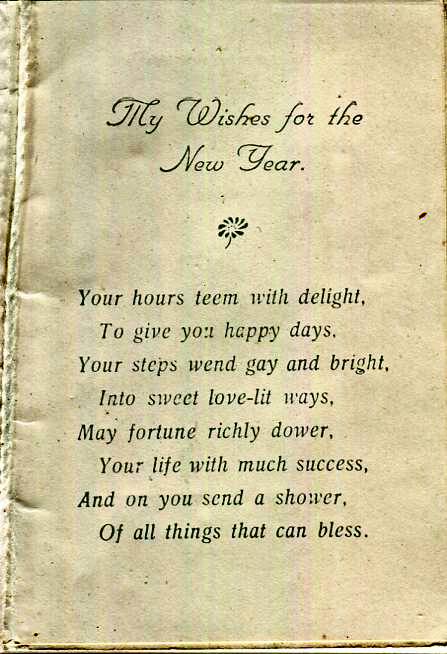 My Wishes for the
New Year.
Your hours teem with delight,
To give you happy days.
Your steps wend gay and bright,
Into sweet love-lit ways,
May fortune richly dower,
Your life with much success,
And on you send a shower,
Of all things that can bless.